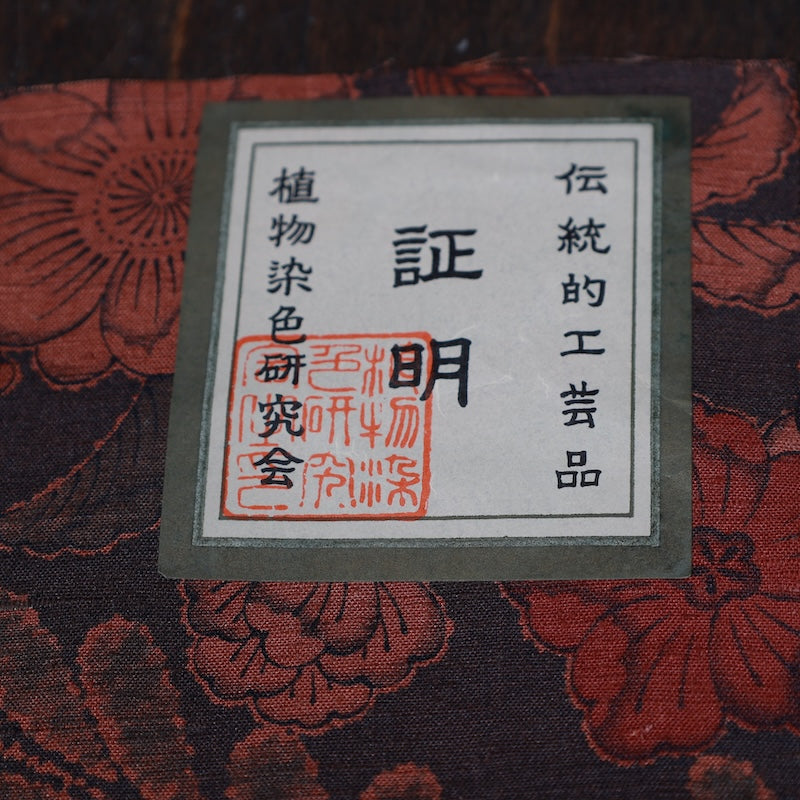 伝統的工芸品
証明
植物染色研究会